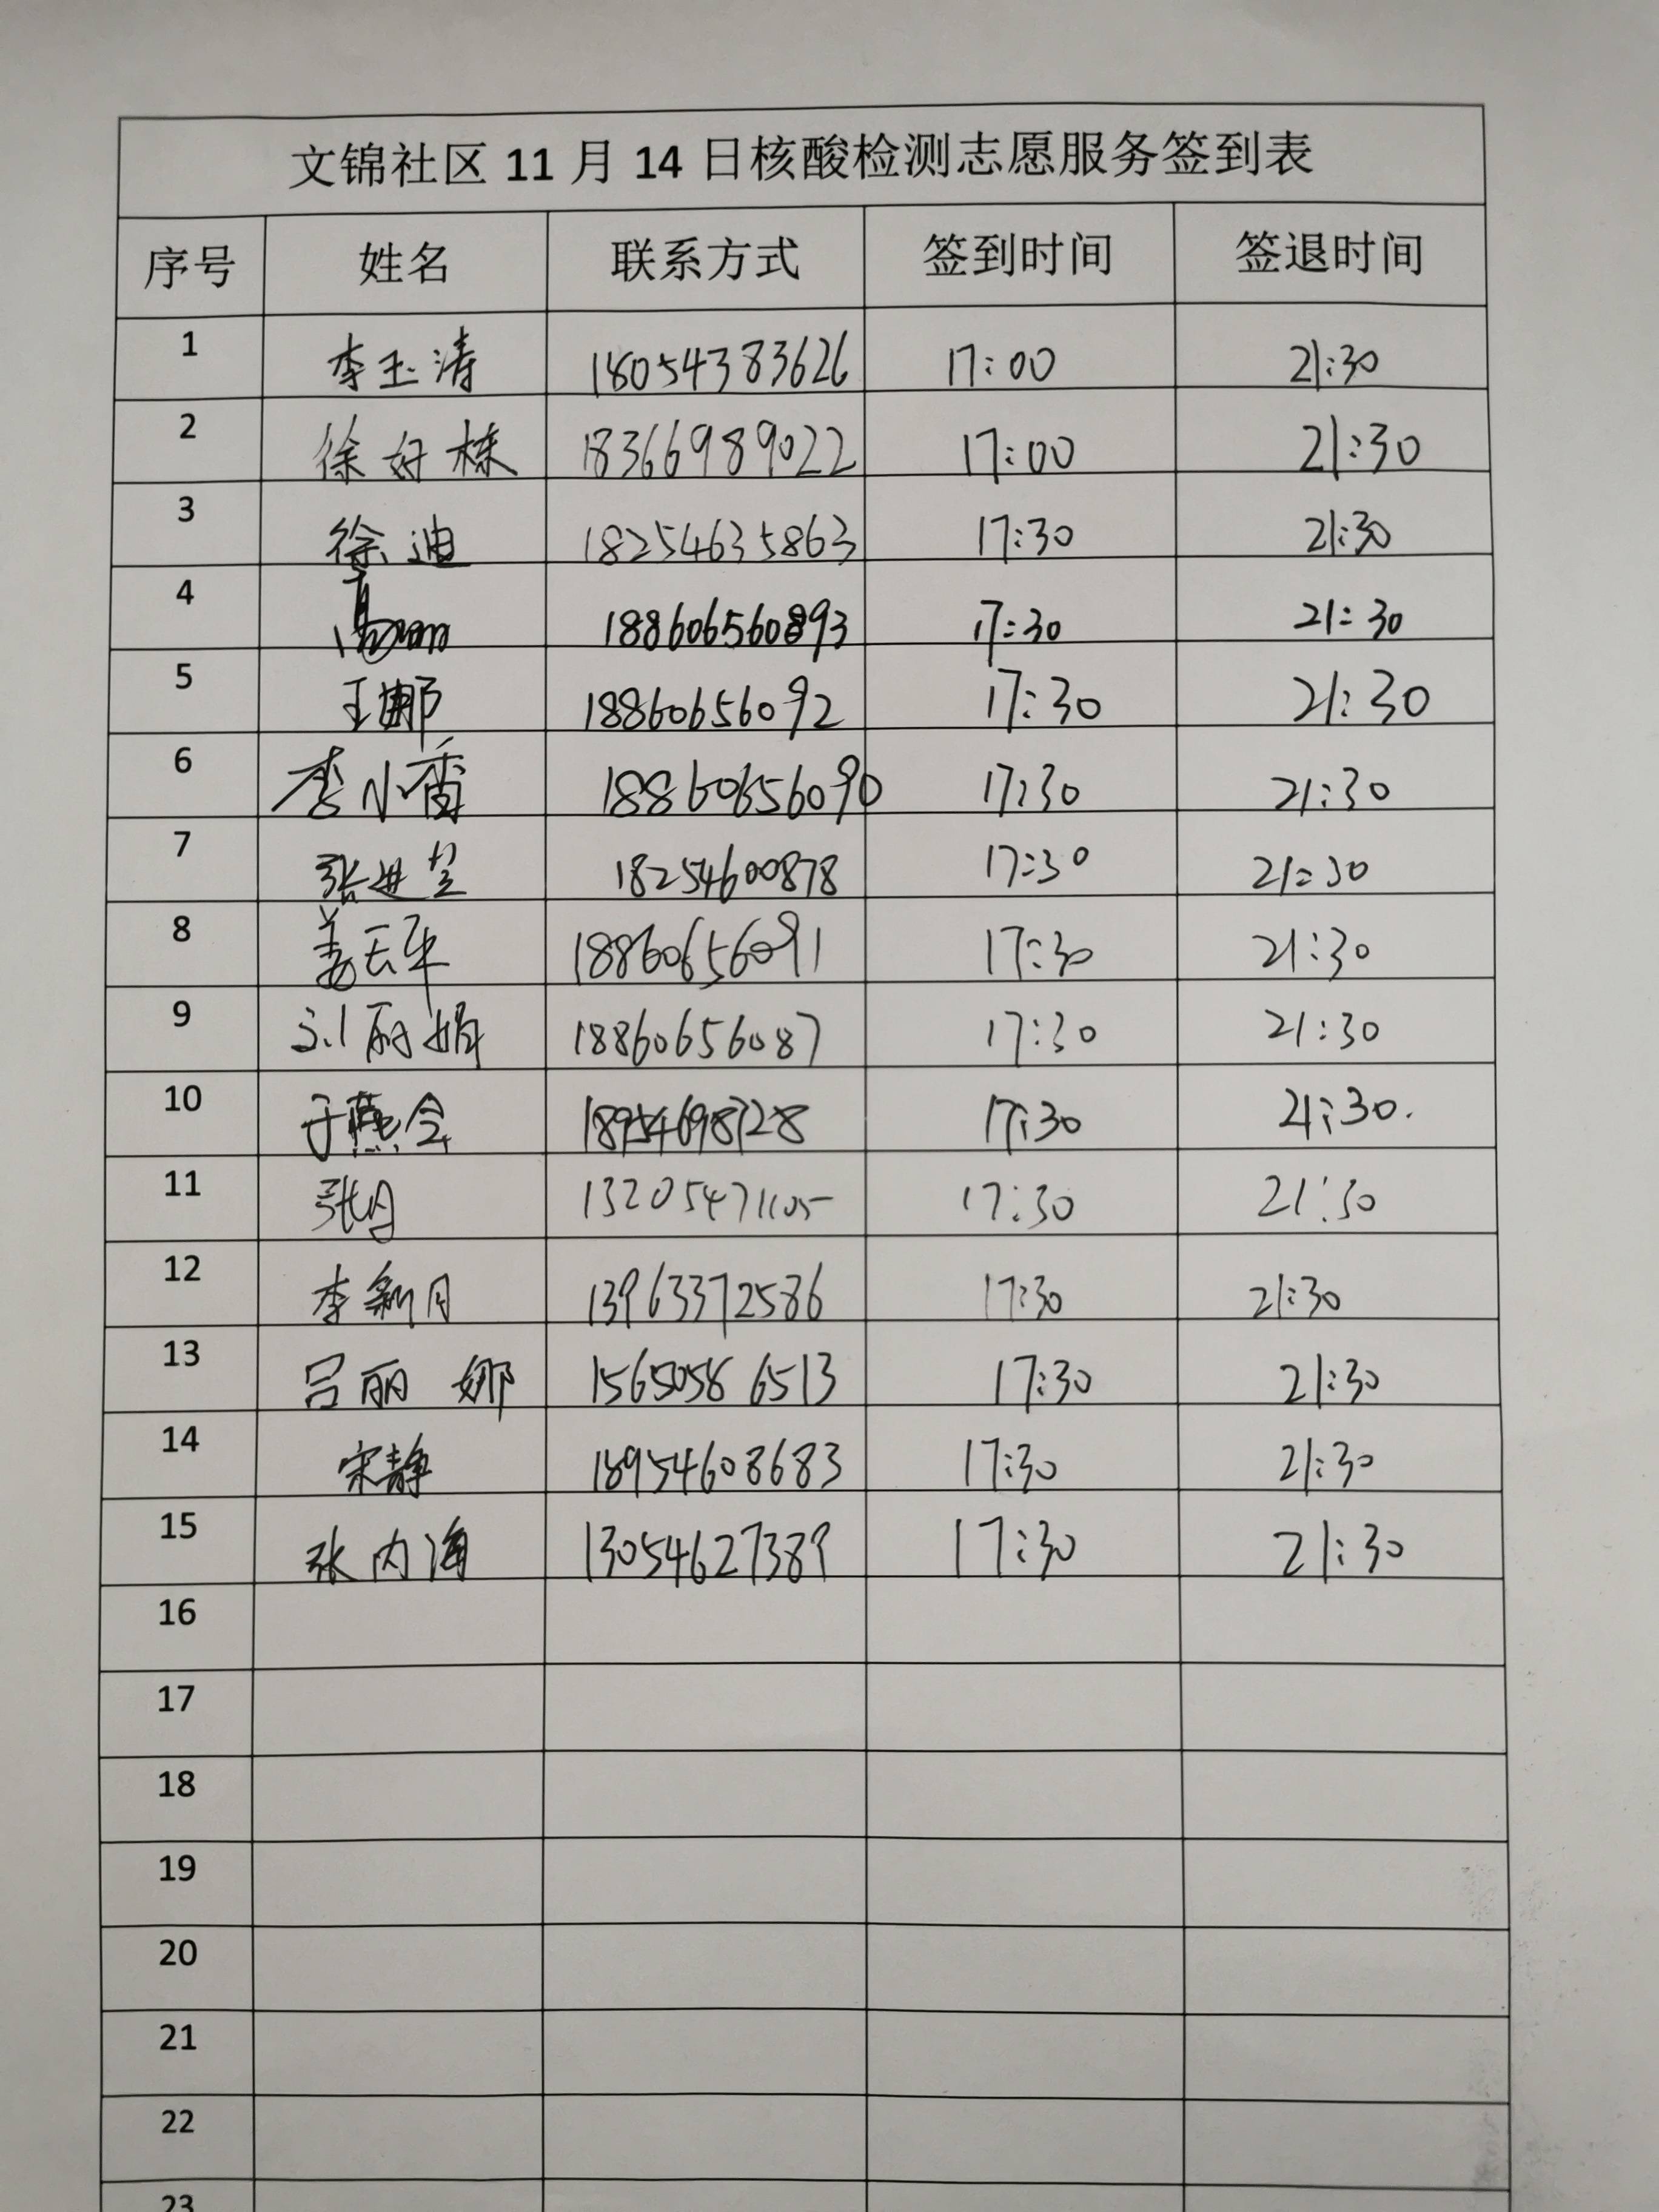 文锦社区 11 月 14 日核酸检测志愿服务签到表
序号 姓名 联系方式 签到时间 签退时间
1 李玉涛 18054383626 17:00 21:30
2 徐好栋 18366989022 17:00 21:30
3 徐迪 18254635863 17:30 21:30
4 188606560893 17:30 21:30
5 王娜 18860656092 17:30 21:30
6 李小香 18860656090 17:30 21:30
7 张进 18254600878 17:30 21:30
8 姜云平 18860656091 17:30 21:30
9 刘丽娟 18860656087 17:30 21:30
10 于燕令 18954698728 17:30 21:30.
11 张丹 13205471105 17:30 21:30
12 李新月 13963372586 17:30 21:30
13 吕丽娜 15650586513 17:30 21:30
14 宋静 18954608683 17:30 21:30
15 张内海 13054627389 17:30 21:30
16
17
18
19
20
21
22
23